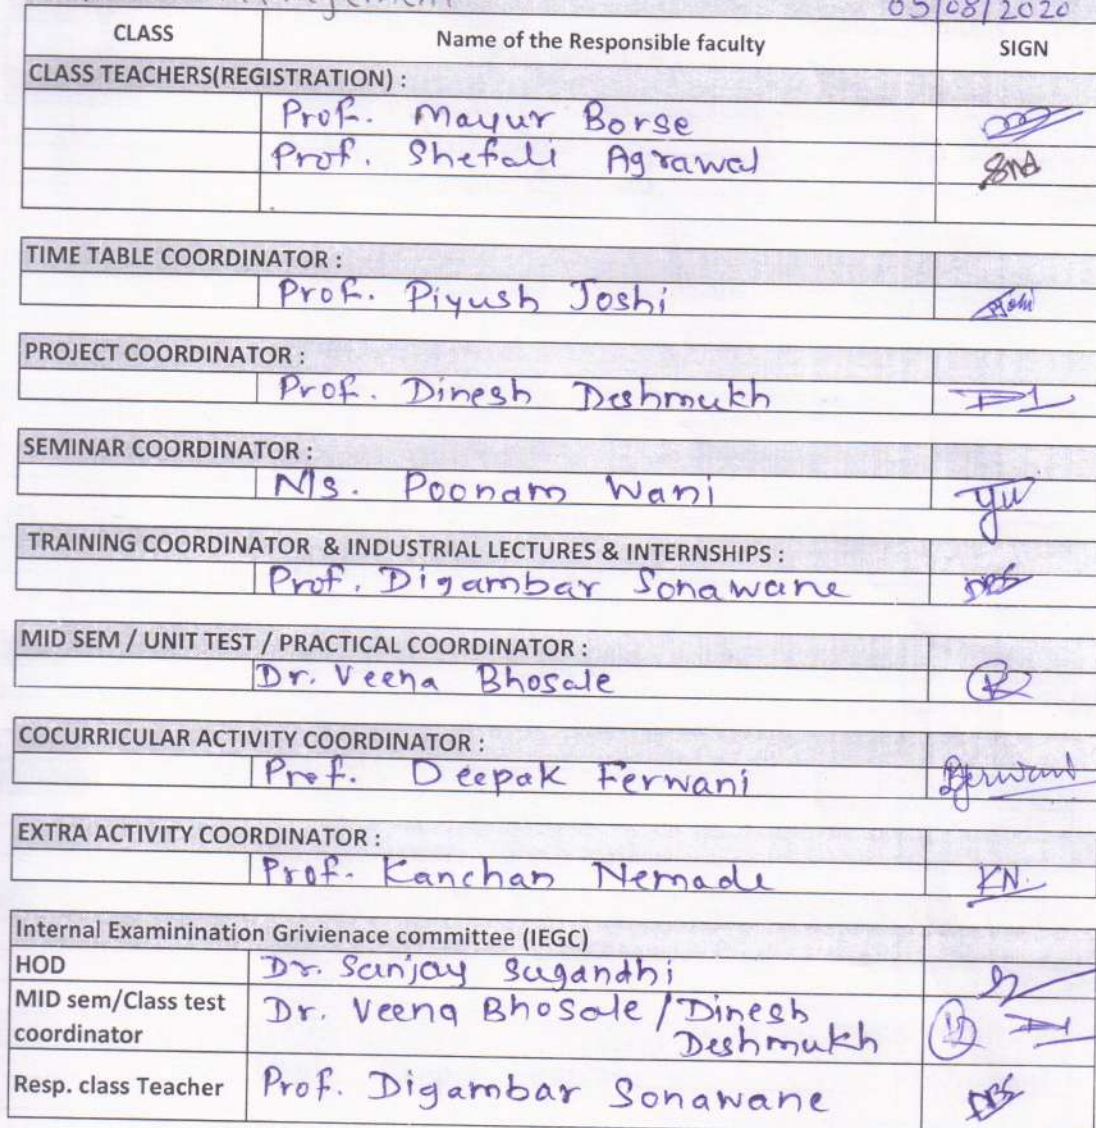 05/08/2020
CLASS Name of the Responsible faculty SIGN
CLASS TEACHERS(REGISTRATION) :
Prof. Mayur Borse
Prof. Shefali Agrawal
TIME TABLE COORDINATOR :
Prof. Piyush Joshi
PROJECT COORDINATOR :
Prof. Dinesh Deshmukh
SEMINAR COORDINATOR :
Ms. Poonam Wani
TRAINING COORDINATOR & INDUSTRIAL LECTURES & INTERNSHIPS :
Prof. Digambar Sonawane
MID SEM / UNIT TEST / PRACTICAL COORDINATOR :
Dr. Veena Bhosale
COCURRICULAR ACTIVITY COORDINATOR :
Prof. Deepak Ferwani
EXTRA ACTIVITY COORDINATOR :
Prof. Kanchan Nemade KN.
Internal Examinination Grivienace committee (IEGC)
HOD Dr. Sanjay Sugandhi
MID sem/Class test Dr. Veena Bhosale / Dinesh
coordinator Deshmukh
Resp. class Teacher Prof. Digambar Sonawane